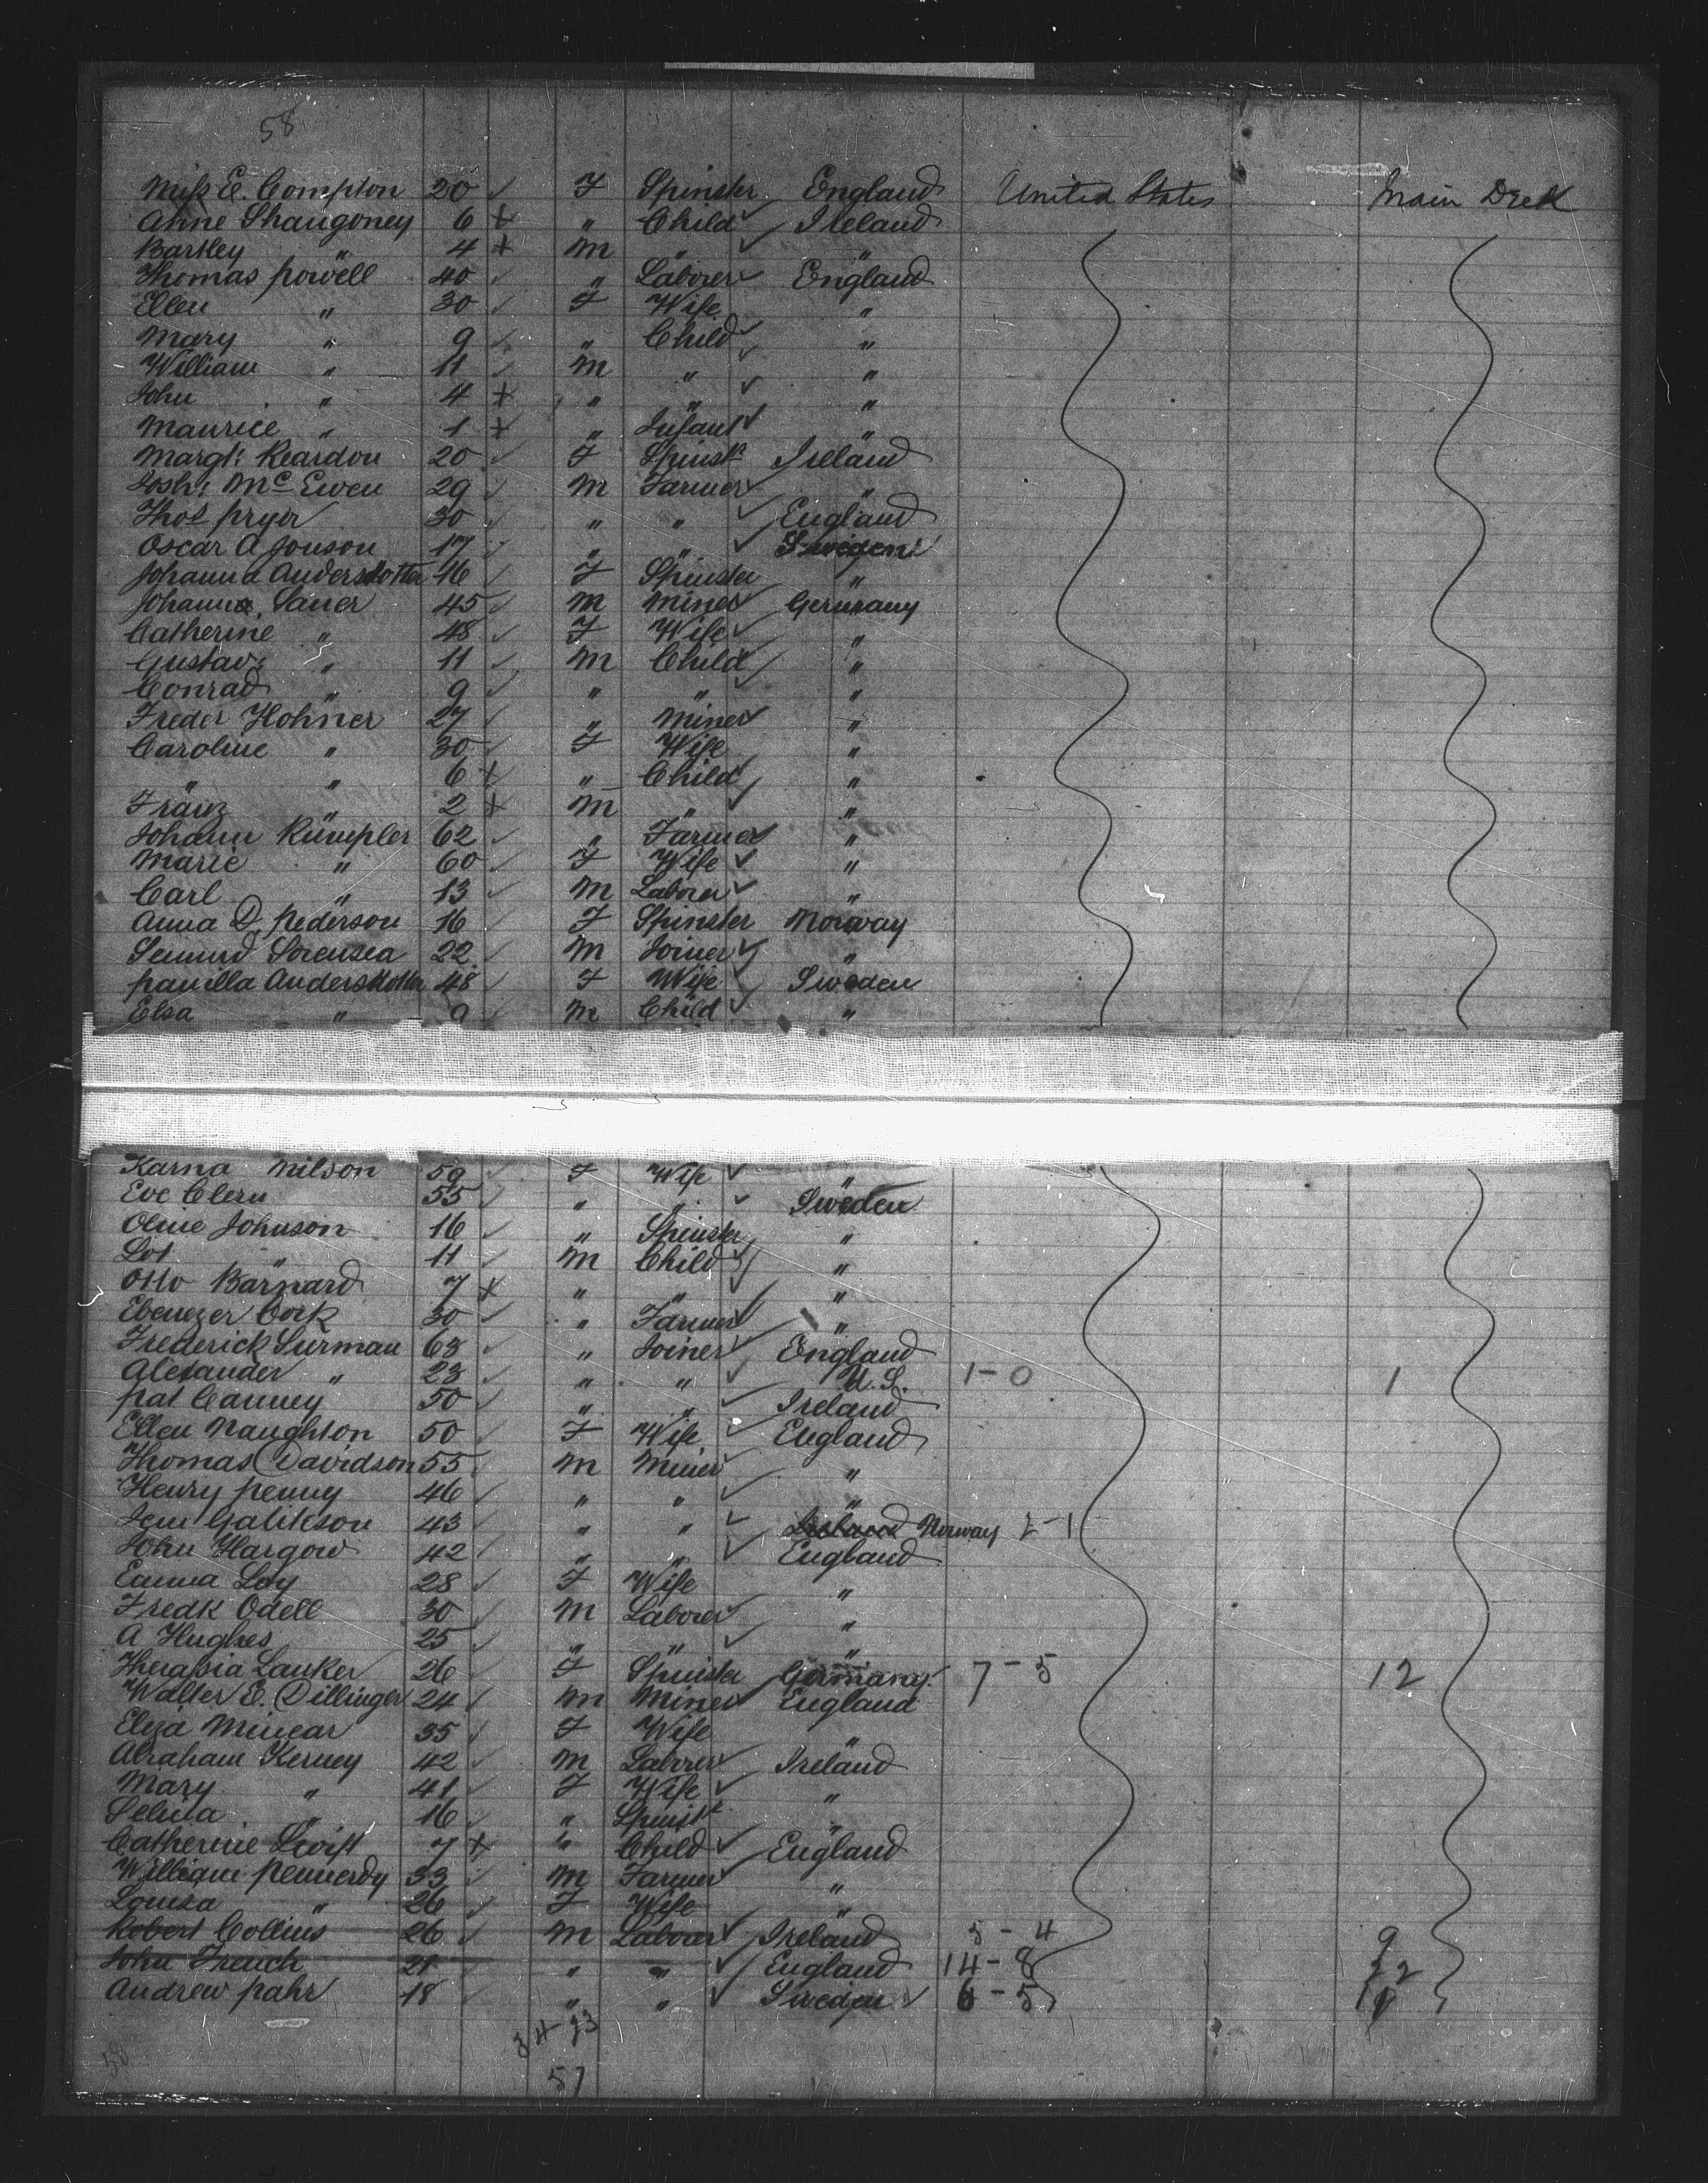 58
Miss E. Compton 20 ✓ F Spinster England United States Main Deck
Anne Shaugoney 6 + " Child ✓ Ireland
Bartley " 4 + M " ✓ "
Thomas Powell 40 ✓ " Laborer ✓ England
Ellen " 30 ✓ F Wife "
Mary " 9 ✓ " Child ✓ "
William " 11 ✓ M " ✓ "
John " 4 + " " ✓ "
Maurice " 1 + " Infant ✓ "
Margt: Reardon 20 ✓ F Spinstr Ireland
Josh: McEwen 29 ✓ M Farmer ✓ "
Thos Pryer 30 ✓ " " ✓ England
Oscar A Jonson 17 ✓ " " ✓ Sweden
Johanna Andersdotter 16 ✓ F Spinster "
Johann Sauer 45 ✓ M Miner ✓ Germany
Catherine " 48 ✓ F Wife ✓ "
Gustav: " 11 ✓ M Child ✓ "
Conrad " 9 ✓ " " ✓ "
Freder Hohner 27 ✓ " Miner ✓ "
Caroline " 30 ✓ F Wife "
" " 6 + " Child ✓ "
Franz " 2 + M " ✓ "
Johann Rümpler 62 ✓ " Farmer ✓ "
Marie " 60 ✓ F Wife ✓ "
Carl " 13 ✓ M Laborer ✓ "
Anna D. Pederson 16 ✓ F Spinster Norway
Sorensea 22 ✓ M Joiner ✓ "
Andersdotter 48 ✓ F Wife ✓ Sweden
Elsa " 9 ✓ M Child ✓ "
Karna Nilson 59 ✓ F Wife ✓ "
Eve Clern 55 ✓ " " ✓ Sweden
Olnie Johnson 16 ✓ " Spinster "
Lot " 11 ✓ M Child ✓ "
Otto Barnard 7 + " " ✓ "
Ebenezer Cock 30 ✓ " Farmer ✓ "
Frederick Surman 63 ✓ " Joiner ✓ England
Alexander " 23 ✓ " " ✓ U.S. 1-0 1
Pat Canney 50 ✓ " " ✓ Ireland
Ellen Naughton 50 ✓ F Wife ✓ England
Thomas Davidson 55 ✓ M Miner ✓ "
Henry Penny 46 ✓ " " ✓ "
Jem Galikson 43 ✓ " " ✓ Ireland Norway 2-1
John Hargow 42 ✓ " " ✓ England
Emma Loy 28 ✓ F Wife "
Fredk Odell 30 ✓ M Laborer ✓ "
A Hughes 25 ✓ " " ✓ "
Therasia Lanker 26 ✓ F Spinster Germany 7-5 12
Walter E. Dillinger 24 ✓ M Miner ✓ England
Eliza Minear 35 ✓ F Wife "
Abraham Kerney 42 ✓ M Laborer ✓ Ireland
Mary " 41 ✓ F Wife ✓ "
Selina " 16 ✓ " Spinstr "
Catherine Swift 7 + " Child ✓ England
William Pennerdy 33 ✓ M Farmer ✓ "
Louisa " 26 ✓ F Wife "
Robert Collins 26 ✓ M Laborer ✓ Ireland 5-4 9
John French 21 ✓ " " ✓ England 14-8 22
Andrew Pahr 18 ✓ " " ✓ Sweden 6-5 11
34-23
57
58